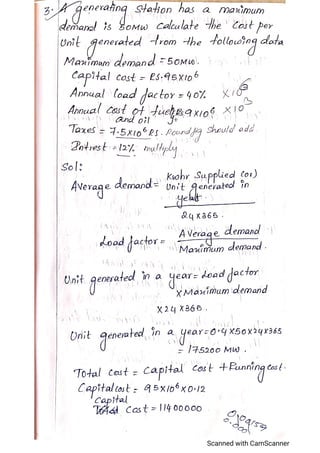 3. A generating Station has a maximum
demand is 50MW Calculate the Cost per
Unit generated from the following data
Maximum demand = 50MW.
Capital cost = RS.95X10⁶
Annual load factor = 40%
Annual Cost of fuel 9X10⁶ X10
and oil
Taxes = 7.5X10⁶ RS. should add
Intrest = 12% multiply
Sol:
Average demand = Kwhr Supplied (or)
Unit generated in
year
24X365.
Load factor = Average demand
Maximum demand.
Unit generated in a year = Load factor
X Maximum demand
X24X365.
Unit generated in a year = 0.4X50X24X365
= 175200 MW.
Total Cost = Capital Cost + Running Cost.
Capital cost = 95X10⁶X0.12
Capital
Cost = 11400000
Scanned with CamScanner